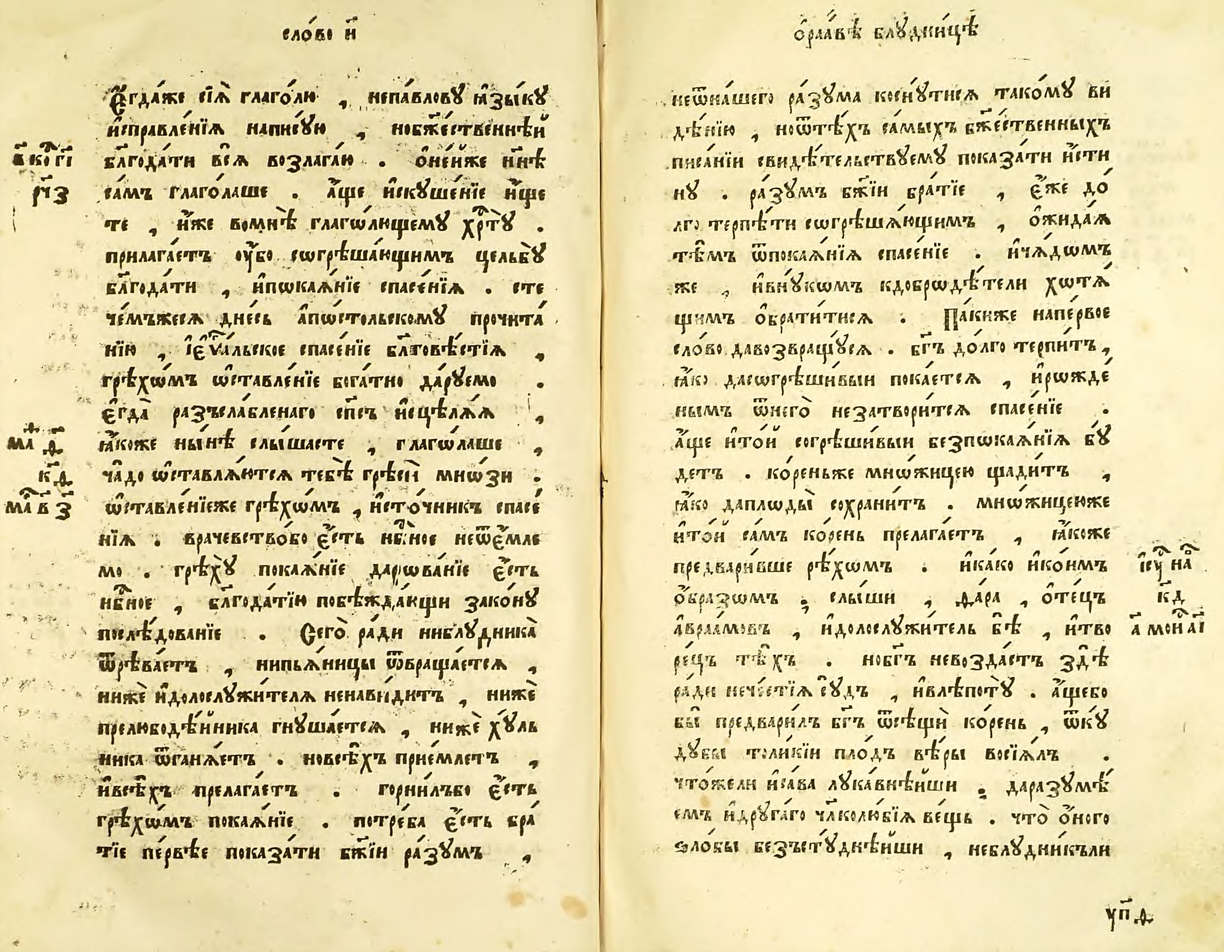 сло́во и҃
Е҆гда́же сїѧ̀ глаго́лю , непа́вловꙋ ꙗ҆зы́кꙋ
и҆справле́нїѧ напи́сꙋю , нобж҃е́ственнѣй
блг҃ода́ти всѧ̀ возлага́ю . ѻ҆не́йже нн҃ѣ
са́мъ глаго́лаше . а҆́ще и҆скꙋше́нїе и҆́ще
те , и҆́же вомнѣ̀ глаго́лющемꙋ хр҇тꙋ̀ .
прилага́етъ ᲂу҆́бо сѡгрѣша́ющимъ цельбꙋ̀
блг҃ода́ти , и҆пѡкаѧ́нїе спасе́нїѧ . сте
че́мъжесѧ дне́сь а҆пѡ́стольскомꙋ прочита́
нїю , і҆еѵ҃льское спасе́нїе блг҃овѣстїѧ ,
грѣхѡ́мъ ѡ҆ставле́нїе бога́тно да́рꙋемо .
є҆гда̀ разъсла́бленаго сп҃съ и҆сцѣлѧ́ѧ ,
ꙗ҆́коже ны́нѣ слы́шасте , глаго́лаше ,
ча́до ѡ҆ставлѧ́ютсѧ тебѣ̀ грѣсѝ мно́ѕи .
ѡ҆ставле́нїеже грѣхѡ́мъ , и҆сто́чникъ спасе́
нїѧ . враче́вствобо є҆́сть нб҇ное неѿє́мле
мо . грѣхꙋ̀ покаѧ́нїе дарѡва́нїе є҆́сть
нб҇ное , блг҃ода́тїю побѣжда́ющи зако́нꙋ
послѣ́дованїе . Сего̀ ра́ди ниблꙋдника̀
ѿрѣва́етъ , нипьѧ́ницы ѿвраща́етсѧ ,
нижѐ и҆долослꙋжи́телѧ ненави́дитъ , нижѐ
прелюбодѣ́йника гнꙋша́етсѧ , нижѐ хꙋ́ль
ника ѿганѧ́етъ . новсѣ́хъ прїе́млетъ ,
и҆всѣ́хъ прелага́етъ . горни́лъбо є҆́сть
грѣхѡ́мъ покаѧ́нїе . потре́ба є҆́сть бра́
тїе пе́рвѣе показа́ти бж҃їи ра́зꙋмъ ,
в҃ ко гі҃
рч҃з
ма д҃
кд҃
ма в҃ з҃
ѻ҆раа́вѣ блꙋдни́цѣ
неѿна́шего ра́зꙋма коснꙋ́тисѧ тако́мꙋ ви
дѣ́нїю , ноѿтѣ́хъ са́мыхъ бж҃е́ственныхъ
писа́нїи свидѣ́тельствꙋемꙋ показа́ти и҆́сти
нꙋ . ра́зꙋмъ бж҃їи бра́тїе , є҆́же до́
лго терпѣ́ти сѡгрѣша́ющимъ , ѻ҆жида́ѧ
тѣ́мъ ѿпокаѧ́нїѧ спасе́нїе . и҆чѧ́дѡмъ
же , и҆внꙋ́кѡмъ кдобрѡдѣ́тели хотѧ́
щимъ ѻ҆брати́тисѧ . Па́киже напе́рвое
сло́во давозвращꙋ́сѧ . бг҃ъ до́лго терпи́тъ ,
ꙗ҆́ко дасогрѣши́выи пока́етсѧ , и҆рѡжде́
нымъ ѿнего̀ незатвори́тсѧ спасе́нїе .
а҆́ще и҆то́й согрѣши́выи безпѡкаѧ́нїѧ бꙋ́
детъ . ко́реньже мно́жицею щади́тъ ,
ꙗ҆́ко даплѡды̀ сохрани́тъ . мно́жицеюже
и҆то́й са́мъ ко́рень прелага́етъ , ꙗ҆́коже
предвари́вше рѣ́хѡмъ . и҆ка́ко и҆ко́имъ
ѻ҆́бразѡмъ ; слы́ши , Ѳа́ра , ѻ҆те́цъ
а҆враа́мовъ , и҆долослꙋжи́тель бѣ̀ , и҆тво
ре́цъ тѣ́хъ . нобг҃ъ невозда́стъ здѣ̀
ра́ди нече́стїѧ сꙋ́дъ , и҆влѣ́потꙋ . а҆́щебо
бы̀ предвари́лъ бг҃ъ ѿсѣщѝ ко́рень , ѿкꙋ́
дꙋбы толи́кїи пло́дъ вѣ́ры восїѧ́лъ .
что́жели и҆са́ва лꙋка́внѣйши ; даразꙋмѣ́
емъ и҆дрꙋга́го чл҃колю́бїѧ ве́щь . что̀ ѻ҆́ного
ѕло́бы безъстꙋ́днѣйши , неблꙋ́дникъли
і҆сꙋ на
кд
а҃ мои аі҃
ꙋп҃д